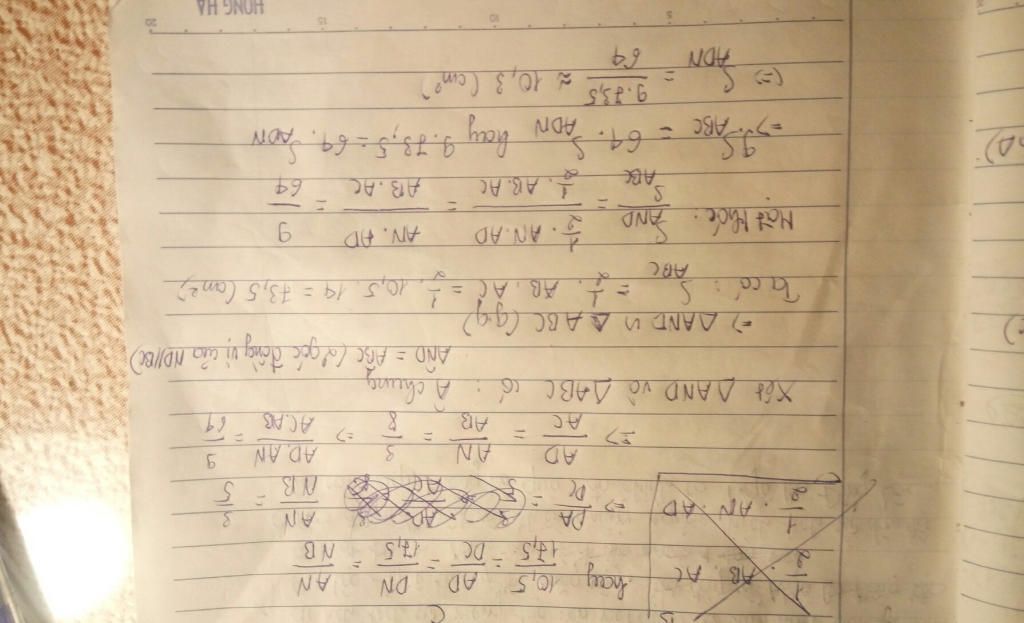 1/2 . AB . AC hay 10,5/17,5 = AD/DC = DN/17,5 = AN/NB
1/2 . AN . AD => DA/DC = AN/NB = 3/5
=> AD/AC = AN/AB = 3/8 => AD.AN/AC.AB = 9/64
Xét △AND và △ABC có : Â chung
AND = ABC (2 góc đồng vị của ND//BC)
=> △AND ∽ △ABC (gg)
Ta có : S ABC = 1/2 . AB . AC = 1/2 . 10,5 . 14 = 73,5 (cm²)
Mặt khác : S AND / S ABC = 1/2 . AN . AD / 1/2 . AB . AC = AN . AD / AB . AC = 9/64
=> 9 . S ABC = 64 . S ADN hay 9 . 73,5 = 64 . S ADN
(=> S ADN = 9 . 73,5 / 64 ≈ 10,3 (cm²)
5 10 15 20
HONG HA